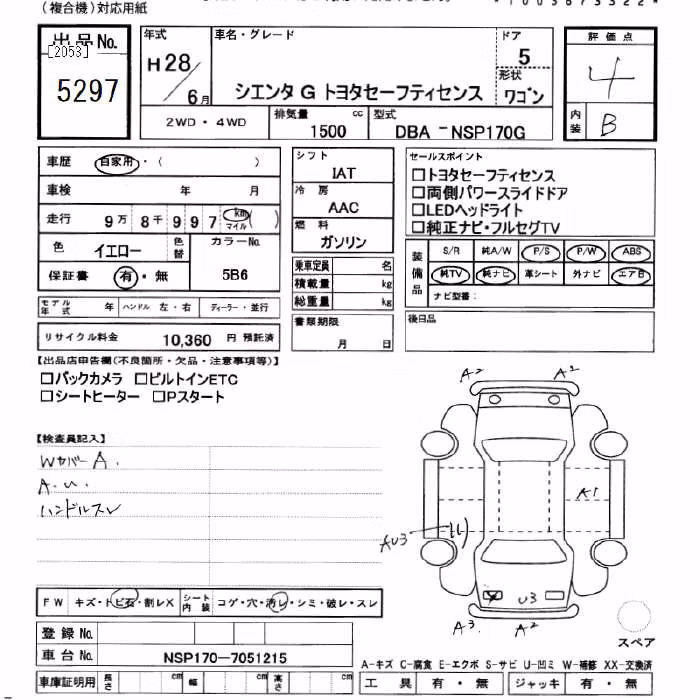 (複合機)対応用紙
出品No.
[2053]
5297
年式
H28/6月
車名・グレード
シエンタ G トヨタセーフティセンス
ドア
5
形状
ワゴン
評価点
4
内装
B
2WD・4WD
排気量
1500 cc
型式
DBA-NSP170G
車歴 自家用・( )
車検 年 月
走行 9万8千997 km マイル ( )
色 イエロー 色替
カラーNo.
5B6
保証書 有・無
モデル年式 年 ハンドル 左・右 ディーラー・並行
リサイクル料金 10,360 円 預託済
シフト
IAT
冷房
AAC
燃料
ガソリン
乗車定員 名
積載量 kg
総重量 kg
書類期限
月 日
セールスポイント
□トヨタセーフティセンス
□両側パワースライドドア
□LEDヘッドライト
□純正ナビ・フルセグTV
装備品
S/R 純A/W P/S P/W ABS
純TV 純ナビ 革シート 外ナビ エアB
ナビ型番:
後日品
【出品店申告欄(不良箇所・欠品・注意事項等)】
□バックカメラ □ビルトインETC
□シートヒーター □Pスタート
【検査員記入】
Wカバー A.
A.U.
ハンドルスレ
A2 A2
A1
AU3
U3
A3 A2
スペア
FW キズ・トビ石・割レX シート内装 コゲ・穴・汚レ・シミ・破レ・スレ
登録No.
車台No. NSP170-7051215
車庫証明用 長さ cm 幅 cm 高さ cm
A-キズ C-腐食 E-エクボ S-サビ U-凹ミ W-補修 XX-交換済
工具 有・無 ジャッキ 有・無